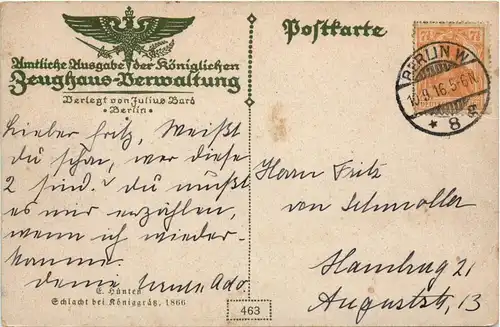 Amtliche Ausgabe der Königlichen
Zeughaus-Verwaltung
Verlegt von Julius Bard
• Berlin •
Postkarte
7½
BERLIN W
10.9.16.5-6N.
* 8 g
Lieber Fritz, Weißt
du schon, wer diese
2 sind? Du mußt
es mir erzählen,
wenn ich wieder-
komme.
Deine Ado.
Herrn Fritz
von Schmoller
Hamburg 21
Auguststr. 13
E. Hünten
Schlacht bei Königgrätz, 1866
463